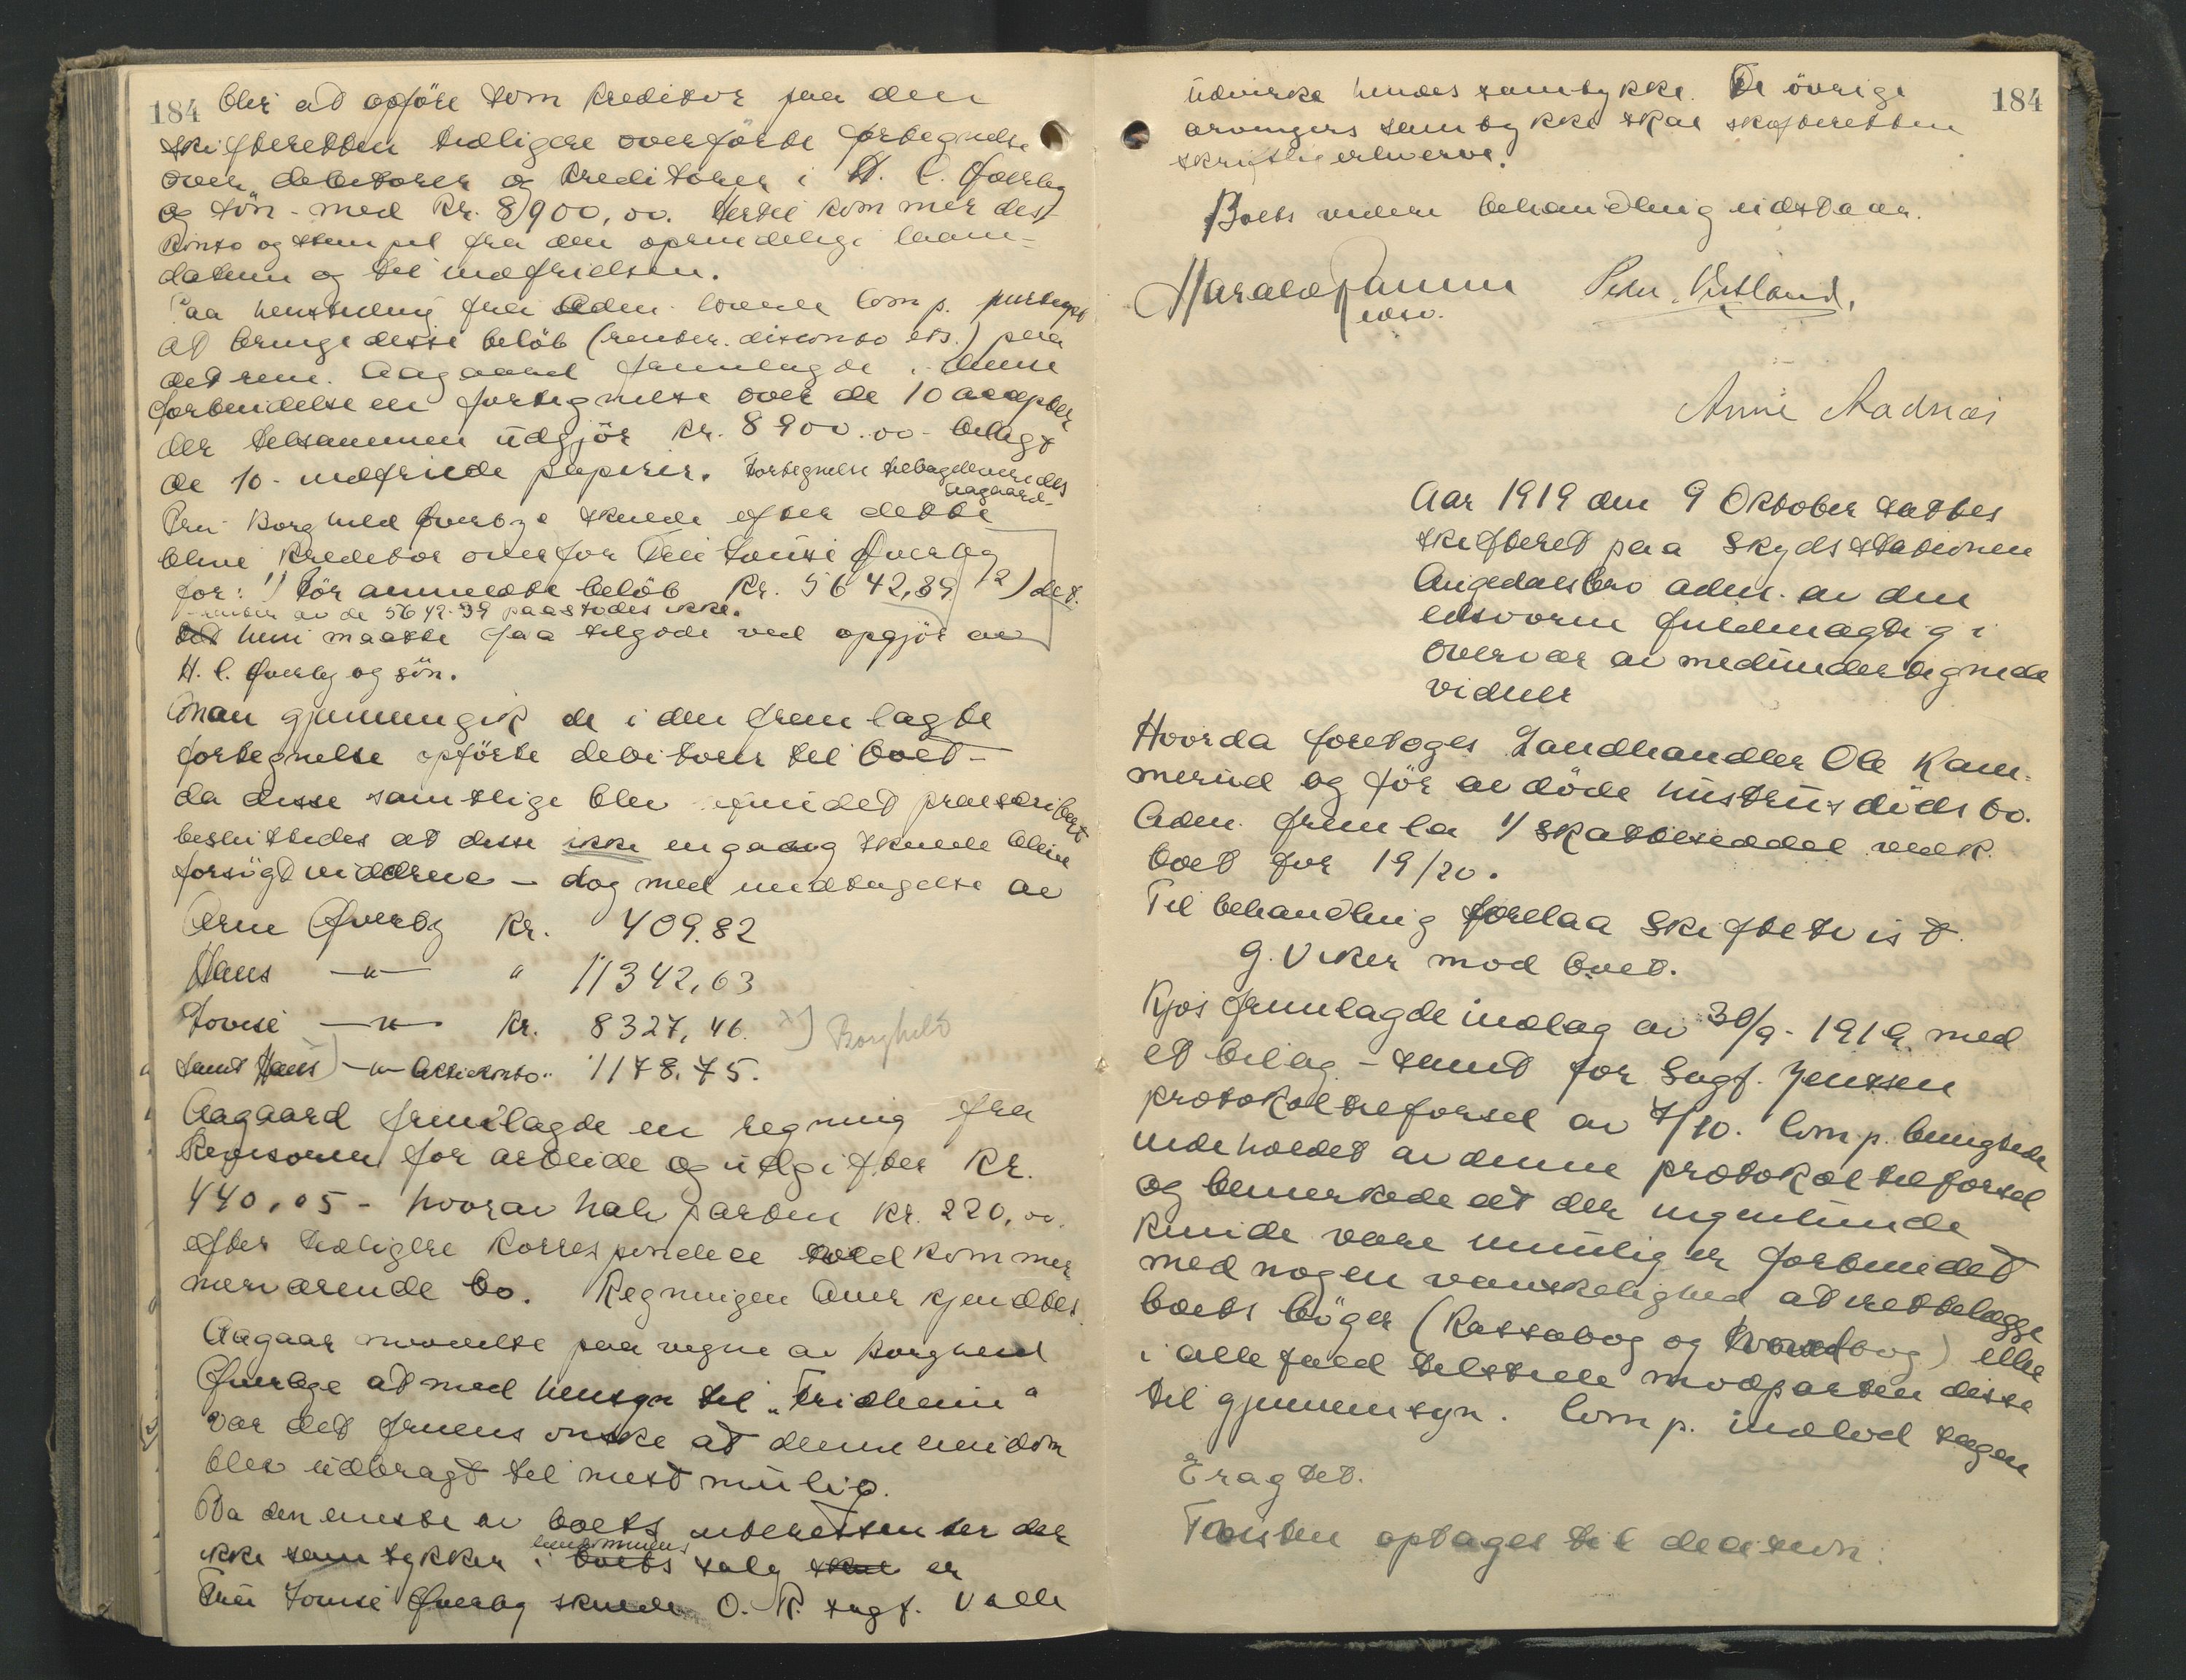 184
blir at opføre som kreditor paa den
skifteretten tidligere overførte fortegnelse
over debitorer og kreditorer i H. C. Øverby
og søn - med kr. 8900,00. Hertil kommer dis-
konto og stempel fra den oprindelige laane-
datum og til indfrielsen.
Paa henstilling fra adm. lovede Comp.
at bringe disse beløb (renter. disconto ets.) paa
det rene. Aagaard fremlagde i denne
forbindelse en fortegnelse over de 10 accepter
der tilsammen udgjør kr. 8900.00 - bilagt
de 10 - indfriede papirer. Fortegnelse tilbageleveredes
Aagaard.
Fru Borghild Øverbye skulde efter dette
blive kreditor overfor Fru Louise Øverby
for: 1) før anmeldte beløb kr. 5642,89 / 2) det.
renter av de 5642.89 paastodes ikke.
hun maatte faa tilgode ved opgjør av
H. C. Øverby og søn.
Man gjennemgik de i den fremlagte
fortegnelse opførte debitorer til boet -
da disse samtlige blev fundet præskribert
besluttedes at disse ikke engang skulde blive
forsøgt inddrevet - dog med undtagelse av
Arne Øverby kr. 409.82
Hans —"— " 11342,63
Lovise —"— kr. 8327,46. x) Borghild
samt Hans) —"— Aktiekonto " 1178.75.
Aagaard fremlagde en regning fra
Revisoren for arbeide og utgifter kr.
440,05 - hvorav halvparten kr. 220,00.
efter tidligere korrespondece vedkommer
nærværende bo. Regningen anerkjendtes.
Aagaar anmeldte paa vegne av Borghild
Øverbye at med hensyn til "Fridheim"
var det fruens ønske at denne eiendom
blev utbragt til mest mulig.
Da den eneste av boets interessenter der
ikke samtykker i eiendommens boets salg skal er
Fru Louise Øverby skulde O. R. sagf. Valle
184
udvirke hendes samtykke. De øvrige
arvingers samtykke skal skifteretten
skriftlig erhverve.
Boets videre behandling udstaar.
Harald Ramm Peder Vestland.
edsv.
Anne Aadnæs
Aar 1919 den 9 Oktober sattes
skifteret paa Skydsstationen
Angedalsbro adm. av den
edsvorne fuldmægtig i
overvær av medundertegnede
vidner
Hvorda foretoges Landhandler Ole Kam-
merud og før avdøde hustrus dødsbo.
Adm. fremla 1/ skatteseddel vedk.
boet for 19/20.
Til behandling forelaa Skiftetvist
G. Viker mod boet.
Kjøs fremlagde indlæg av 30/9 - 1919 med
et bilag - samt for Sagf. Jenssen
protokoltilførsel av 7/10. Comp. benegtede
indeholdet av denne protokoltilførsel
og bemerkede at der ingenlunde
kunde være umulig er forbundet
med nogen vanskelighed at retteelægge
boets bøger (Kassabog og hovedbog) eller
i allefald tilstille modparten disse
til gjennemsyn. Comp. indlod sagen
Eragtet.
Tvisten optages til decision.